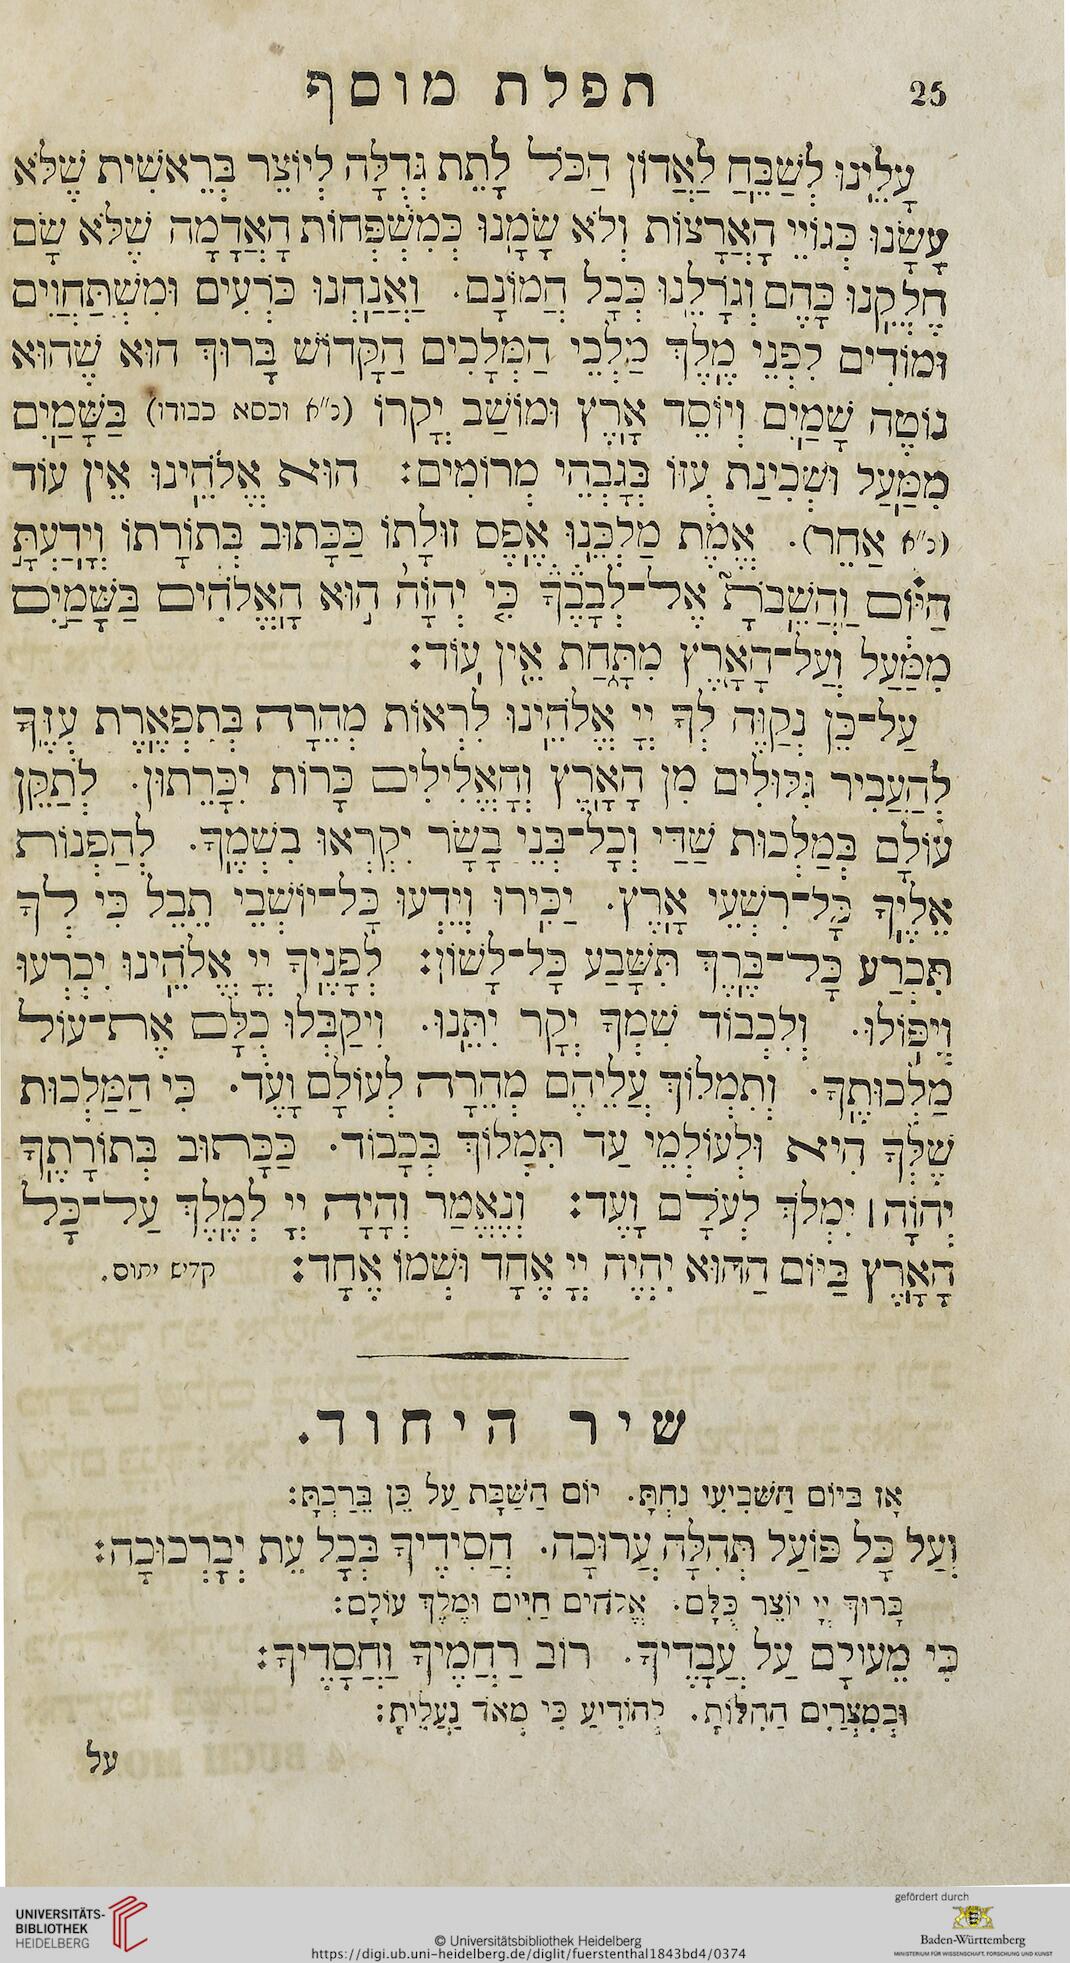 25
תפלת מוסף
עָלֵֽינוּ לְשַׁבֵּֽחַ לַאֲדוֹן הַכֹּל לָתֵת גְּדֻלָּה לְיוֹצֵר בְּרֵאשִׁית שֶׁלֹּא
עָשָֽׂנוּ כְּגוֹיֵי הָאֲרָצוֹת וְלֹא שָׂמָֽנוּ כְּמִשְׁפְּחוֹת הָאֲדָמָה שֶׁלֹּא שָׂם
חֶלְקֵֽנוּ כָּהֶם וְגוֹרָלֵֽנוּ כְּכָל הֲמוֹנָם. וַאֲנַֽחְנוּ כֹּרְעִים וּמִשְׁתַּחֲוִים
וּמוֹדִים לִפְנֵי מֶֽלֶךְ מַלְכֵי הַמְּלָכִים הַקָּדוֹשׁ בָּרוּךְ הוּא שֶׁהוּא
נוֹטֶה שָׁמַֽיִם וְיוֹסֵד אָֽרֶץ וּמוֹשַׁב יְקָרוֹ (נ״א וכסא כבודו) בַּשָּׁמַֽיִם
מִמַּֽעַל וּשְׁכִינַת עֻזּוֹ בְּגָבְהֵי מְרוֹמִים: הוּא אֱלֹהֵֽינוּ אֵין עוֹד
(נ״א אַחֵר). אֱמֶת מַלְכֵּֽנוּ אֶֽפֶס זוּלָתוֹ כַּכָּתוּב בְּתוֹרָתוֹ וְיָדַעְתָּ
הַיּוֹם וַהֲשֵׁבֹתָ אֶל־לְבָבֶךָ כִּי יְהֹוָה הוּא הָאֱלֹהִים בַּשָּׁמַיִם
מִמַּעַל וְעַל־הָאָרֶץ מִתָּחַת אֵין עוֹד:
עַל־כֵּן נְקַוֶּה לְּךָ יְיָ אֱלֹהֵֽינוּ לִרְאוֹת מְהֵרָה בְּתִפְאֶֽרֶת עֻזֶּֽךָ
לְהַעֲבִיר גִּלּוּלִים מִן הָאָֽרֶץ וְהָאֱלִילִים כָּרוֹת יִכָּרֵתוּן. לְתַקֵּן
עוֹלָם בְּמַלְכוּת שַׁדַּי וְכָל־בְּנֵי בָשָׂר יִקְרְאוּ בִשְׁמֶֽךָ. לְהַפְנוֹת
אֵלֶֽיךָ כָּל־רִשְׁעֵי אָֽרֶץ. יַכִּֽירוּ וְיֵדְעוּ כָּל־יוֹשְׁבֵי תֵבֵל כִּי לְךָ
תִּכְרַע כָּל־בֶּֽרֶךְ תִּשָּׁבַע כָּל־לָשׁוֹן: לְפָנֶֽיךָ יְיָ אֱלֹהֵֽינוּ יִכְרְעוּ
וְיִפּֽוֹלוּ. וְלִכְבוֹד שִׁמְךָ יְקָר יִתֵּֽנוּ. וִיקַבְּלוּ כֻלָּם אֶת־עוֹל
מַלְכוּתֶֽךָ. וְתִמְלוֹךְ עֲלֵיהֶם מְהֵרָה לְעוֹלָם וָעֶד. כִּי הַמַּלְכוּת
שֶׁלְּךָ הִיא וּלְעוֹלְמֵי עַד תִּמְלוֹךְ בְּכָבוֹד. כַּכָּתוּב בְּתוֹרָתֶֽךָ
יְהֹוָה ׀ יִמְלֹךְ לְעֹלָם וָעֶד: וְנֶאֱמַר וְהָיָה יְיָ לְמֶֽלֶךְ עַל־כָּל
הָאָֽרֶץ בַּיּוֹם הַהוּא יִהְיֶה יְיָ אֶחָד וּשְׁמוֹ אֶחָד: קדיש יתום.
שיר היחוד.
אָז בַּיּוֹם הַשְּׁבִיעִי נַחְתָּ. יוֹם הַשַּׁבָּת עַל כֵּן בֵּרַכְתָּ:
וְעַל כָּל פּוֹעַל תְּהִלָּה עֲרוּכָה. חֲסִידֶיךָ בְּכָל עֵת יְבָרְכוּכָה:
בָּרוּךְ יְיָ יוֹצֵר כֻּלָּם. אֱלֹהִים חַיִּים וּמֶלֶךְ עוֹלָם:
כִּי מֵעוֹלָם עַל עֲבָדֶיךָ. רוֹב רַחֲמֶיךָ וַחֲסָדֶיךָ:
וּבְמִצְרַיִם הַחִלּוֹתָ. לְהוֹדִיעַ כִּי מְאֹד נַעֲלֵיתָ:
על
UNIVERSITÄTS-
BIBLIOTHEK
HEIDELBERG
© Universitätsbibliothek Heidelberg
https://digi.ub.uni-heidelberg.de/diglit/fuerstenthal1843bd4/0374
gefördert durch
Baden-Württemberg
MINISTERIUM FÜR WISSENSCHAFT, FORSCHUNG UND KUNST